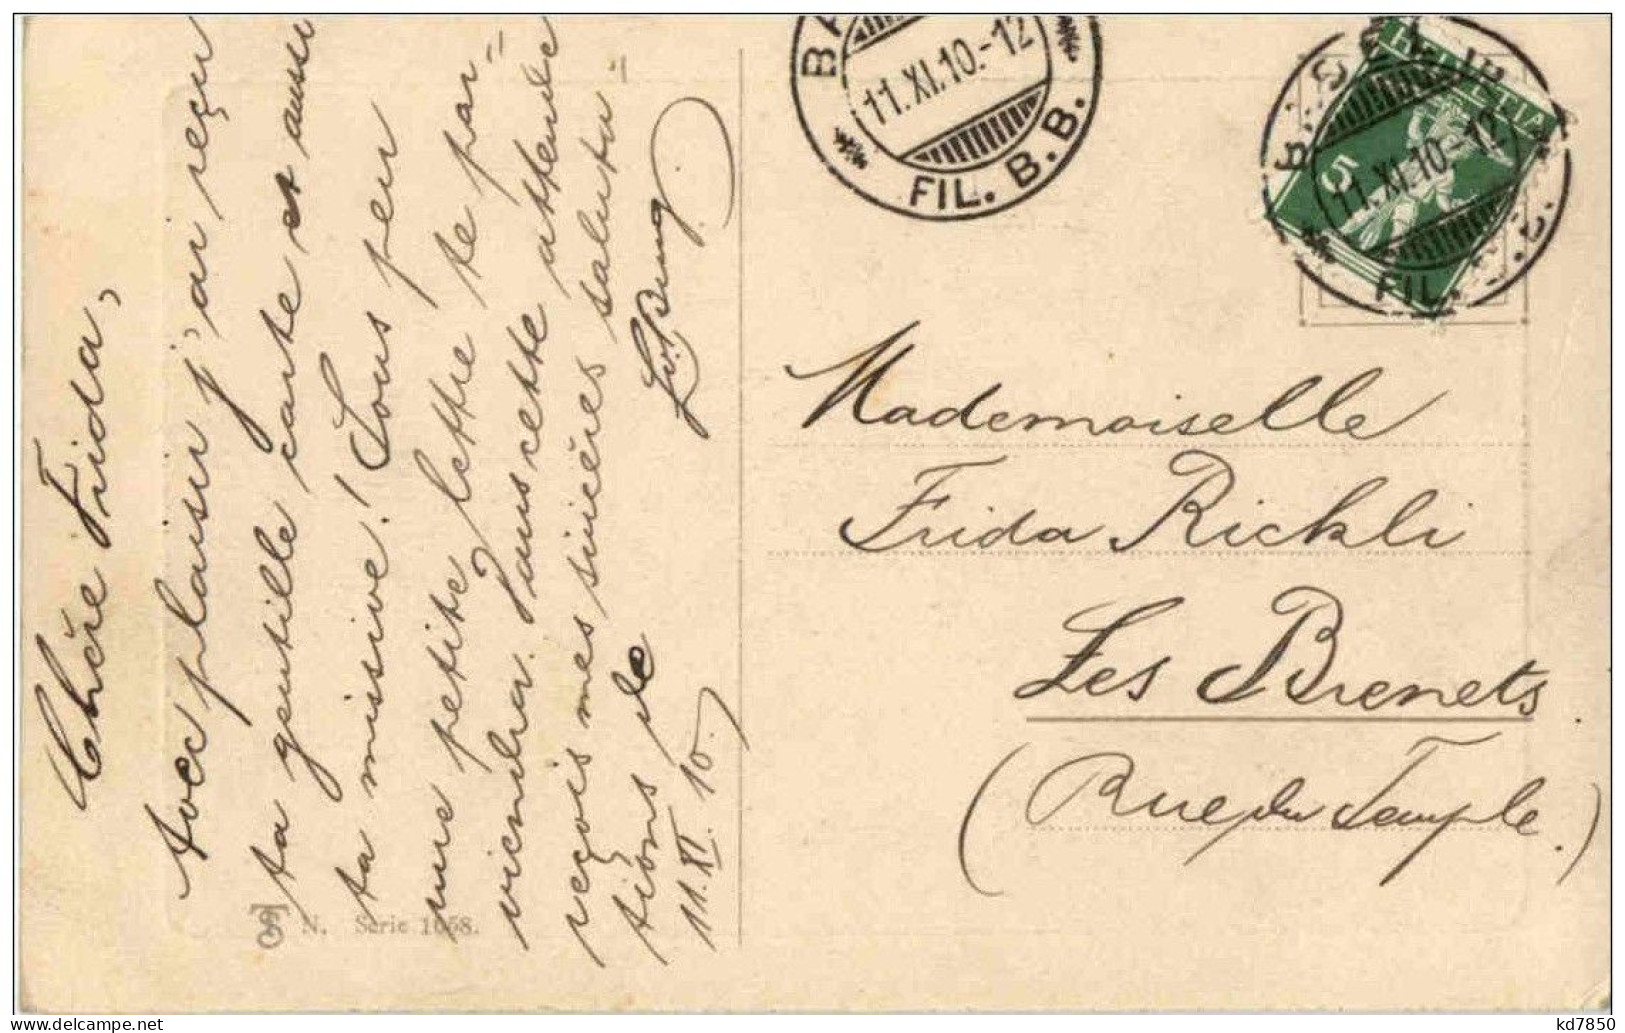 Chère Frida,
Avec plaisir j'ai reçu
ta gentille carte et aussi
ta missive! Sous peu
une petite lettre te par-
viendra. Dans cette attente
reçois mes sincères saluta-
tions de
11.XI.10.
N. Serie 1658.
BA
11.XI.10.-12
FIL. B.B.
HELVETIA
5
11.XI.10-12
FIL.
Mademoiselle
Frida Rickli
Les Brenets
(Rue du Temple.)
kd7850